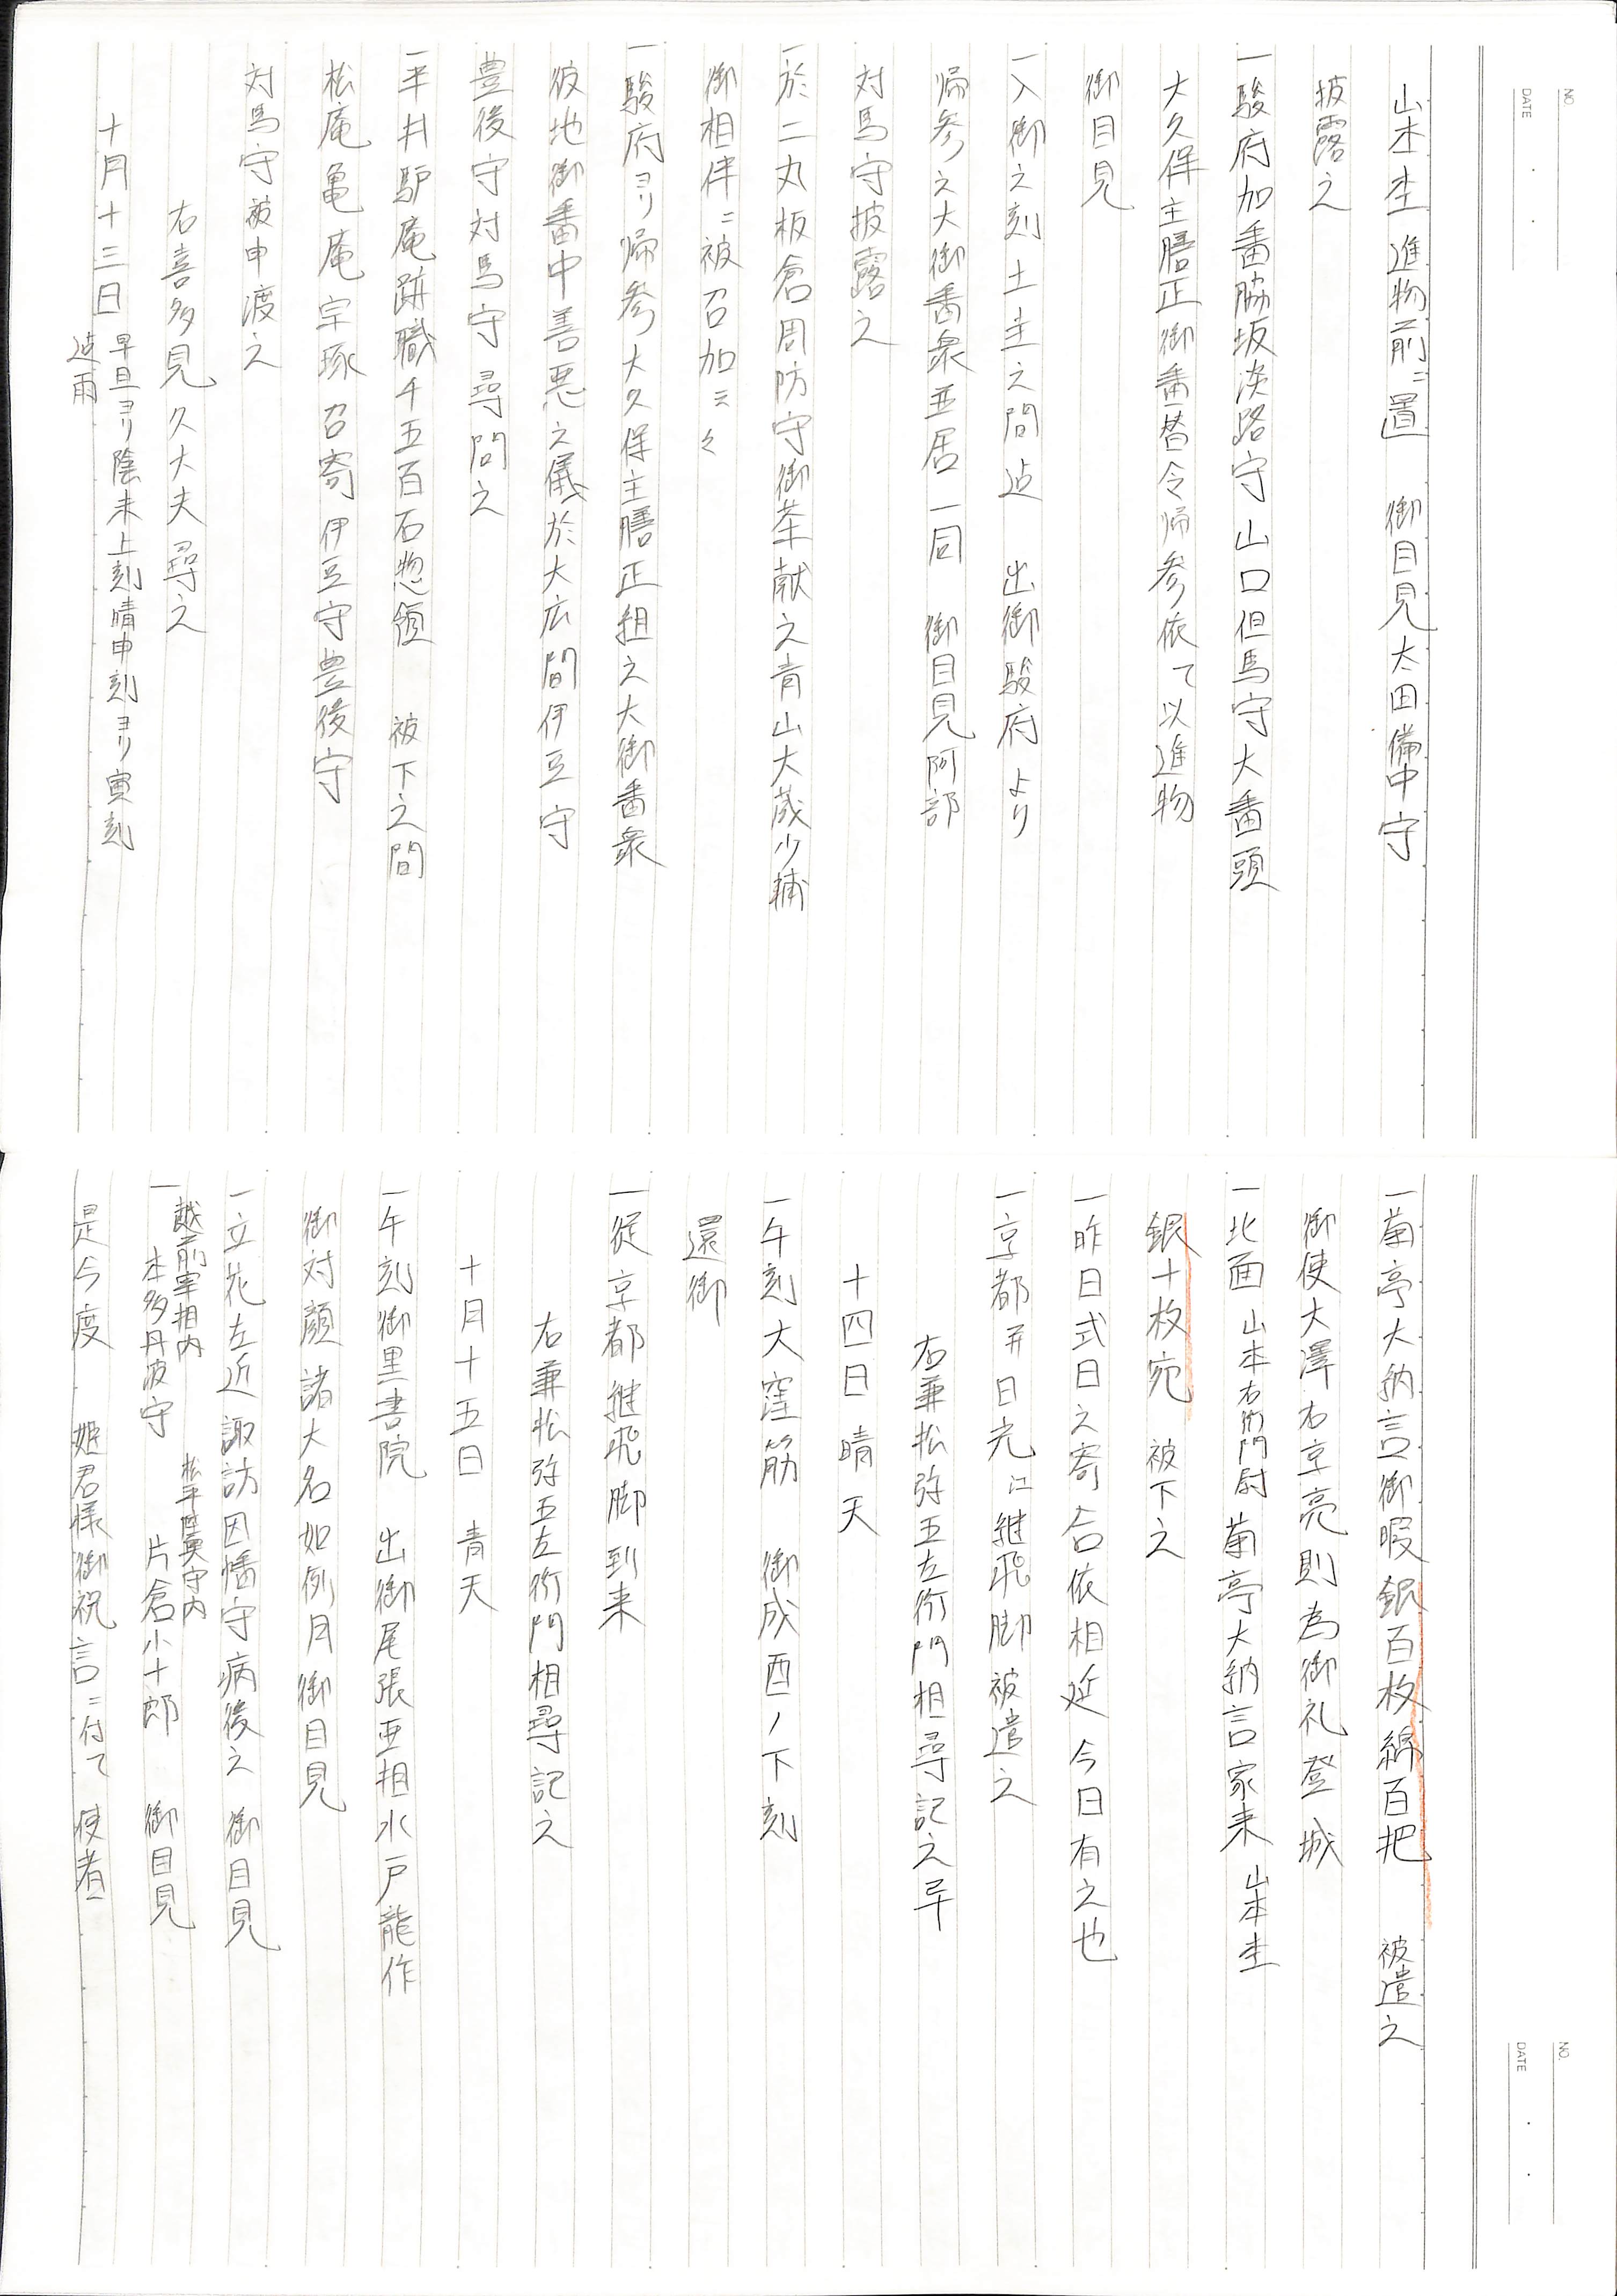 NO.
DATE
山本杢 進物前ニ置 御目見太田備中守
披露之
一駿府加番脇坂淡路守山口但馬守大番頭
大久保主膳正御番替令帰参依て以進物
御目見
一入御之刻土圭之間迠 出御駿府より
帰参之大御番衆並居一同 御目見阿部
対馬守披露之
一於二丸板倉周防守御茶献之青山大蔵少輔
御相伴ニ被召加云々
一駿府ヨリ帰参大久保主膳正組之大御番衆
彼地御番中善悪之儀於大広間伊豆守
豊後守対馬守尋問之
一平井駅庵跡職千五百石惣領 被下之間
松庵亀庵宗琢召寄伊豆守豊後守
対馬守被申渡之
右喜多見久大夫尋之
十月十三日 早旦ヨリ陰未上刻晴申刻ヨリ寅刻
迠雨
NO.
DATE
一菊亭大納言御暇銀百枚綿百把 被遣之
御使大澤右京亮則為御礼登城
一北面山本右衛門尉菊亭大納言家来山本杢
銀十枚宛 被下之
一昨日式日之寄合依相延今日有之也
一京都并日光江継飛脚被遣之
右兼松弥五左衛門相尋記之早
十四日 晴天
一午刻大窪筋 御成酉ノ下刻
還御
一従京都継飛脚到来
右兼松弥五左衛門相尋記之
十月十五日 青天
一午刻御黒書院 出御尾張亜相水戸龍作
御対顔諸大名如例月御目見
一立花左近諏訪因幡守病後之 御目見
一越前宰相内 本多丹波守 松平陸奥守内 片倉小十郎 御目見
是今度 姫君様御祝言ニ付て 使者